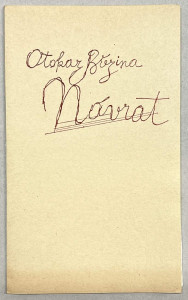 Otokar Březina
Návrat